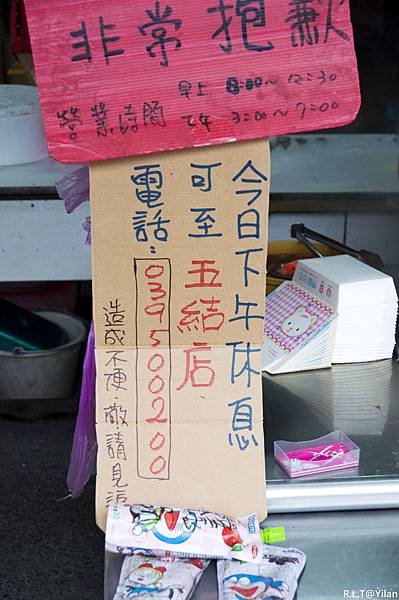 非常抱歉
營業時間
早上 8:00～12:30
下午 3:00～7:00
今日下午休息
可至五結店.
電話:039500200
造成不便.敬.請見諒
R.L.T@Yilan